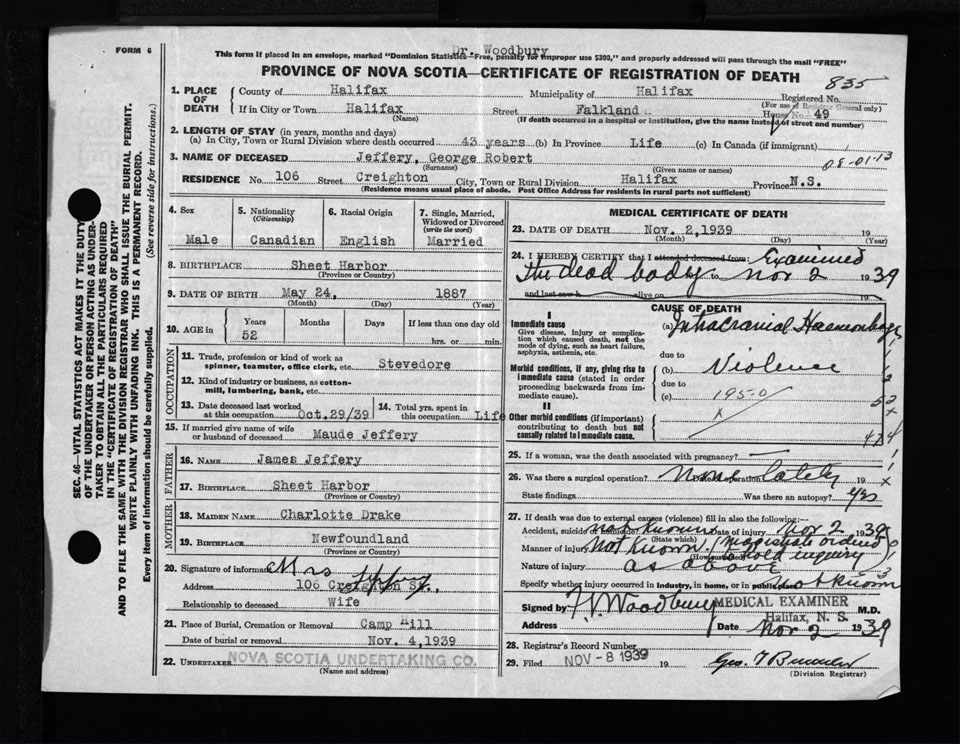 FORM 6
Dr. Woodbury
This form if placed in an envelope, marked "Dominion Statistics—Free, penalty for improper use $300," and properly addressed will pass through the mail "FREE"
PROVINCE OF NOVA SCOTIA—CERTIFICATE OF REGISTRATION OF DEATH
835
1. PLACE OF DEATH
County of Halifax Municipality of Halifax Registered No.
(For use of Registrar General only)
If in City or Town Halifax Street Falkland House No. 49
(Name) (If death occurred in a hospital or institution, give the name instead of street and number)
2. LENGTH OF STAY (in years, months and days)
(a) In City, Town or Rural Division where death occurred 43 years (b) In Province Life (c) In Canada (if immigrant)
08-01-13
3. NAME OF DECEASED Jeffery, George Robert
(Surname) (Given name or names)
RESIDENCE No. 106 Street Creighton City, Town or Rural Division Halifax Province N.S.
(Residence means usual place of abode. Post Office Address for residents in rural parts not sufficient)
4. Sex
Male
5. Nationality
(Citizenship)
Canadian
6. Racial Origin
English
7. Single, Married, Widowed or Divorced
(write the word)
Married
8. BIRTHPLACE Sheet Harbor
(Province or Country)
9. DATE OF BIRTH May 24, 1887
(Month) (Day) (Year)
10. AGE in
Years Months Days If less than one day old
52 hrs. or min.
OCCUPATION
11. Trade, profession or kind of work as
spinner, teamster, office clerk, etc. Stevedore
12. Kind of industry or business, as cotton-
mill, lumbering, bank, etc.
13. Date deceased last worked
at this occupation Oct.29/39
14. Total yrs. spent in
this occupation Life
15. If married give name of wife
or husband of deceased Maude Jeffery
FATHER
16. NAME James Jeffery
17. BIRTHPLACE Sheet Harbor
(Province or Country)
MOTHER
18. MAIDEN NAME Charlotte Drake
19. BIRTHPLACE Newfoundland
(Province or Country)
20. Signature of informant Mrs
Address 106 Creighton St.,
Relationship to deceased Wife
21. Place of Burial, Cremation or Removal Camp Hill
Date of burial or removal Nov. 4,1939
22. UNDERTAKER NOVA SCOTIA UNDERTAKING CO.
(Name and address)
MEDICAL CERTIFICATE OF DEATH
23. DATE OF DEATH Nov. 2,1939 19
(Month) (Day) (Year)
24. I HEREBY CERTIFY that I attended deceased from: Examined
The dead body to Nov 2 1939
and last saw h alive on 19
CAUSE OF DEATH
I
Immediate cause
Give disease, injury or complication which caused death, not the mode of dying, such as heart failure, asphyxia, asthenia, etc.
(a) Intracranial Haemorrhage
due to
Morbid conditions, if any, giving rise to immediate cause (stated in order proceeding backwards from immediate cause).
(b) Violence
due to
(c) 195-0
II
Other morbid conditions (if important) contributing to death but not causally related to immediate cause.
25. If a woman, was the death associated with pregnancy?
26. Was there a surgical operation? None lately 19
State findings Was there an autopsy? yes
27. If death was due to external causes (violence) fill in also the following:—
Accident, suicide or homicide? not known Date of injury Nov 2 1939
(State which)
Manner of injury Not Known. (Magistrate ordered to hold inquiry
Nature of injury as above
Specify whether injury occurred in industry, in home, or in public place not known
Signed by Woodbury MEDICAL EXAMINER M.D.
Halifax, N. S.
Address Date Nov 2 1939
28. Registrar's Record Number
29. Filed NOV - 8 1939 19
(Division Registrar)
SEC. 46—VITAL STATISTICS ACT MAKES IT THE DUTY
OF THE UNDERTAKER OR PERSON ACTING AS UNDER-
TAKER TO OBTAIN ALL THE PARTICULARS REQUIRED
IN THE "CERTIFICATE OF REGISTRATION OF DEATH"
AND TO FILE THE SAME WITH THE DIVISION REGISTRAR WHO SHALL ISSUE THE BURIAL PERMIT.
WRITE PLAINLY WITH UNFADING INK. THIS IS A PERMANENT RECORD.
Every item of information should be carefully supplied. (See reverse side for instructions.)